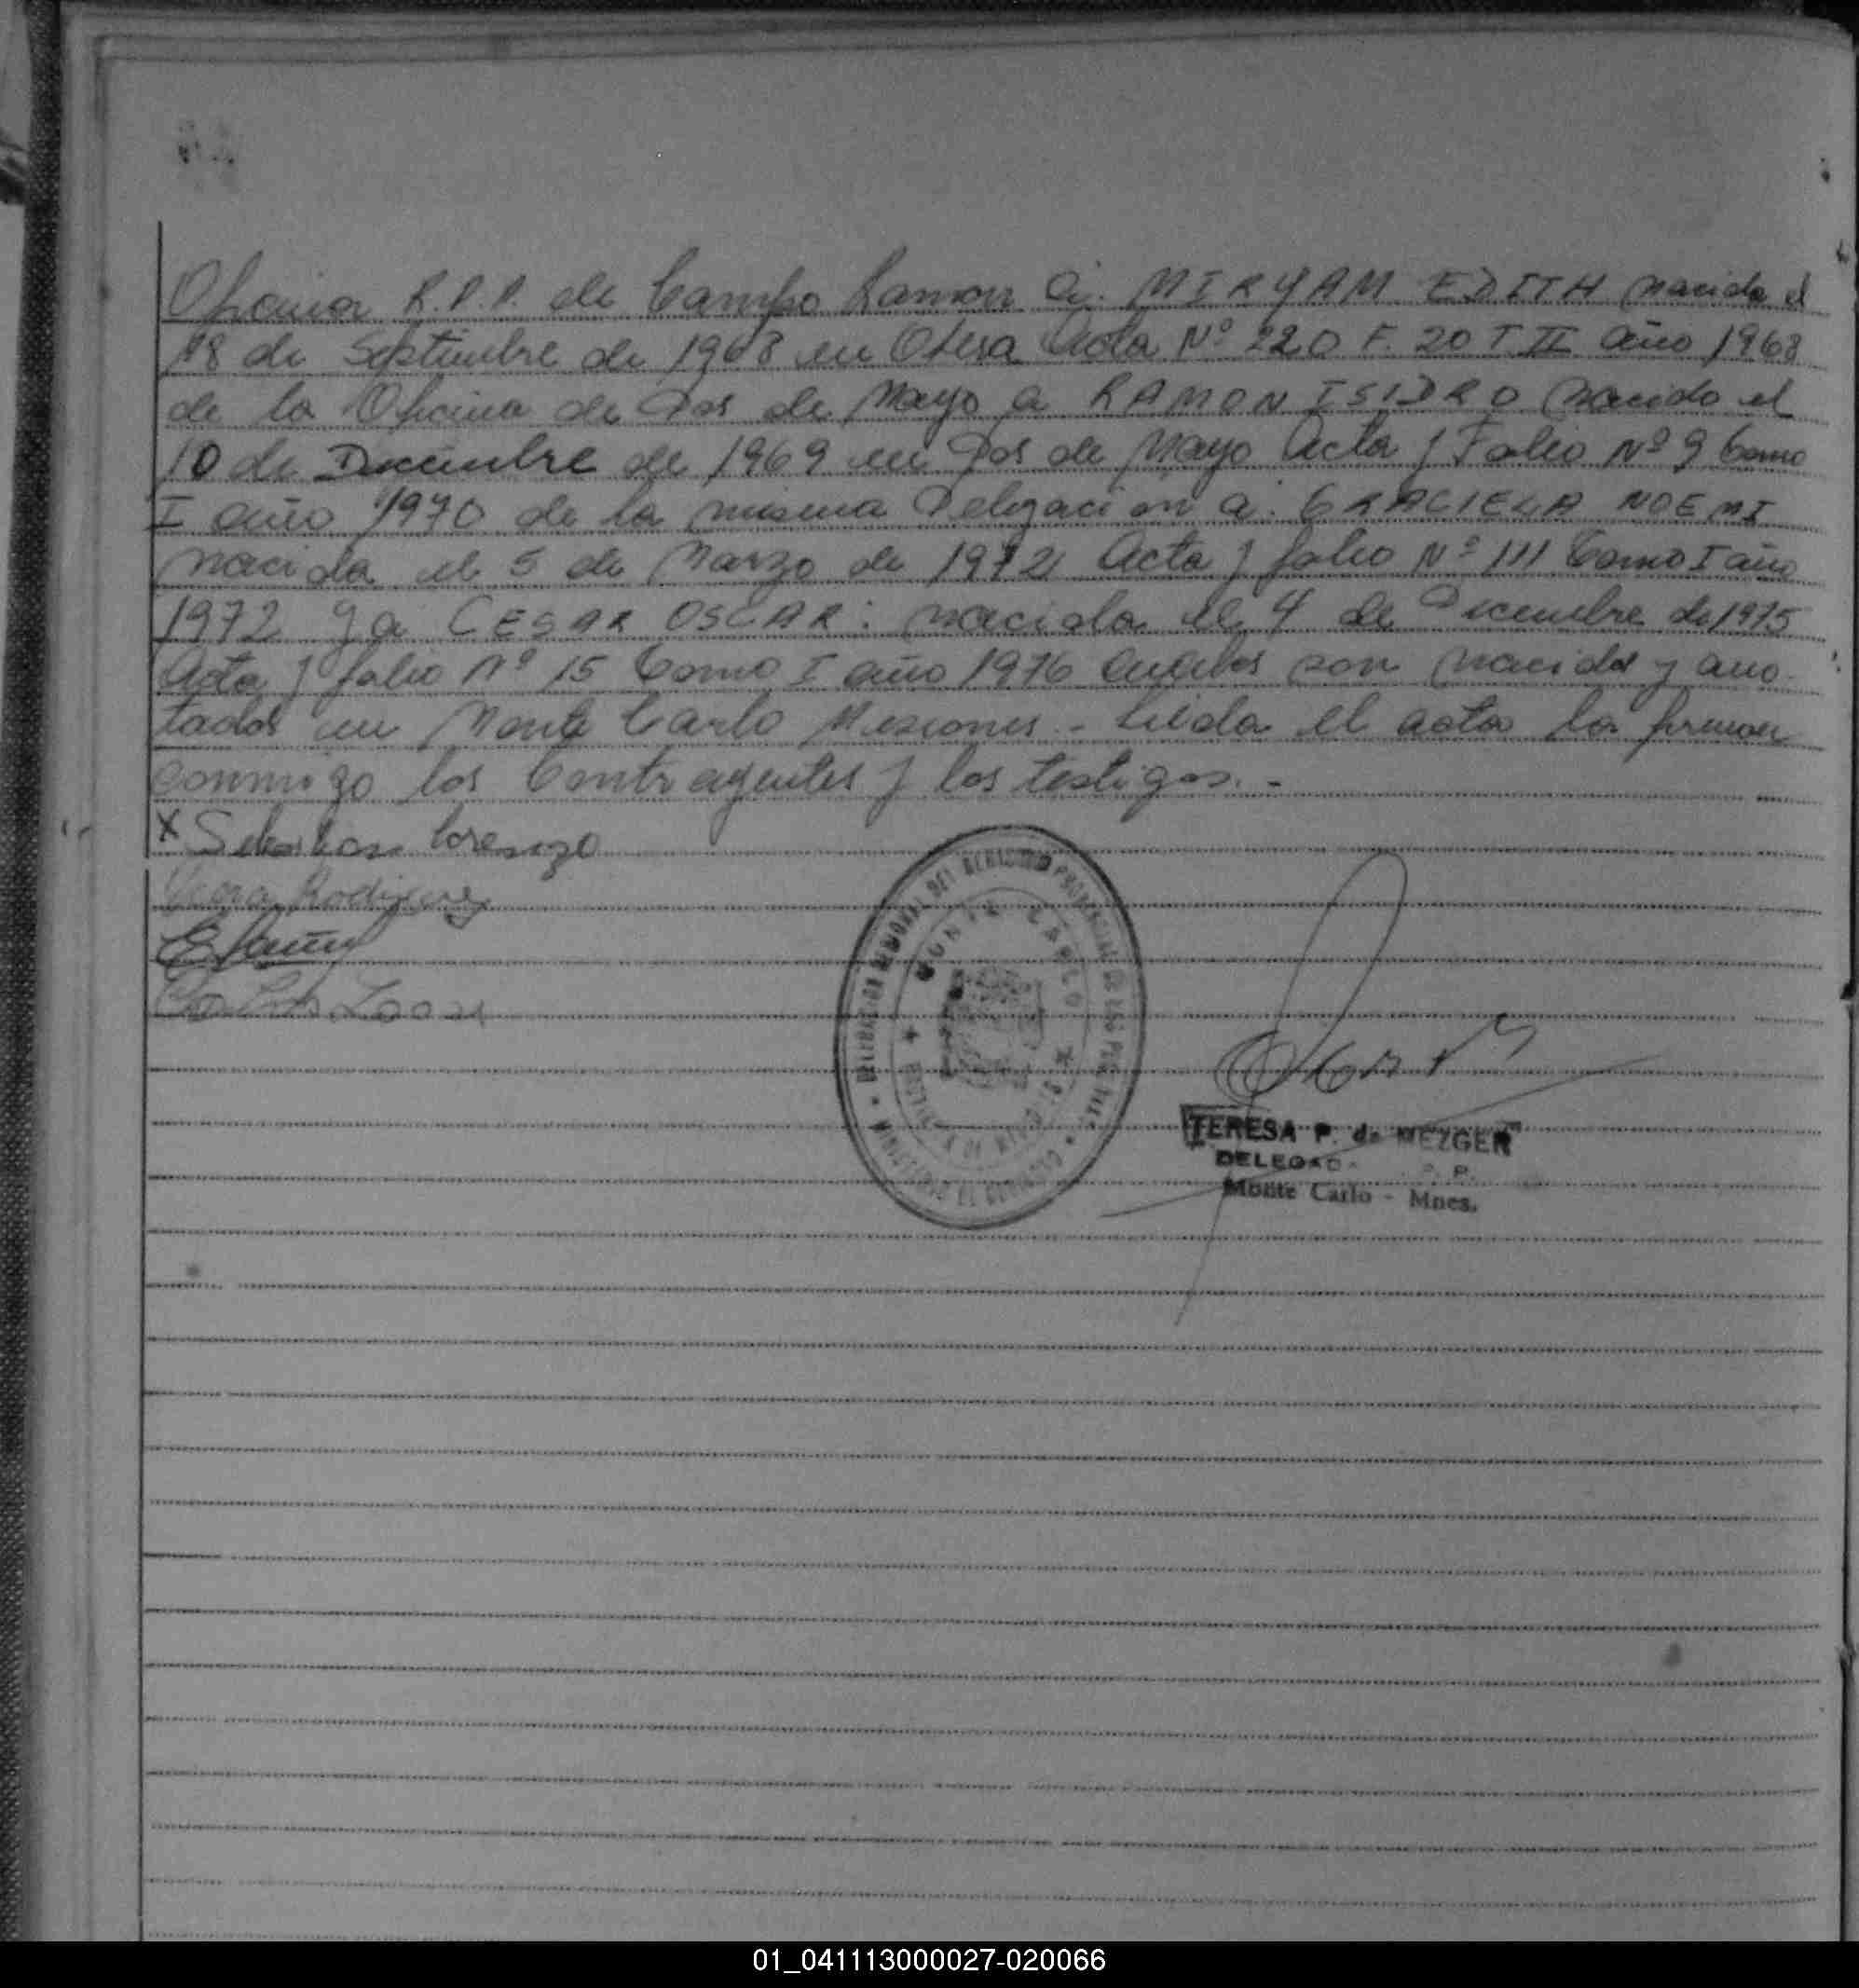 Oficina R.P.P. de Campo Ramon a: MIRYAM EDITH nacida el
18 de Septiembre de 1968 en Obera Acta Nº 220 F. 20 T II año 1968
de la Oficina de Dos de Mayo a RAMON ISIDRO nacido el
10 de Diciembre de 1969 en Dos de Mayo Acta y Folio Nº 9 Tomo
I año 1970 de la misma Delegacion a: GRACIELA NOEMI
nacida el 5 de Marzo de 1972 Acta y folio Nº 111 Tomo I año
1972 y a CESAR OSCAR: nacido el 4 de Diciembre de 1975
Acta y folio Nº 15 Tomo I año 1976 son nacidos y ano
tados en Monte Carlo Misiones - Leida el acta la firman
conmigo los Contrayentes y los testigos.-
x Sebastian Lorenzo
Rodriguez
MONTE CARLO
TERESA P. de MEZGER
DELEGAD
Monte Carlo - Mnes.
01_041113000027-020066